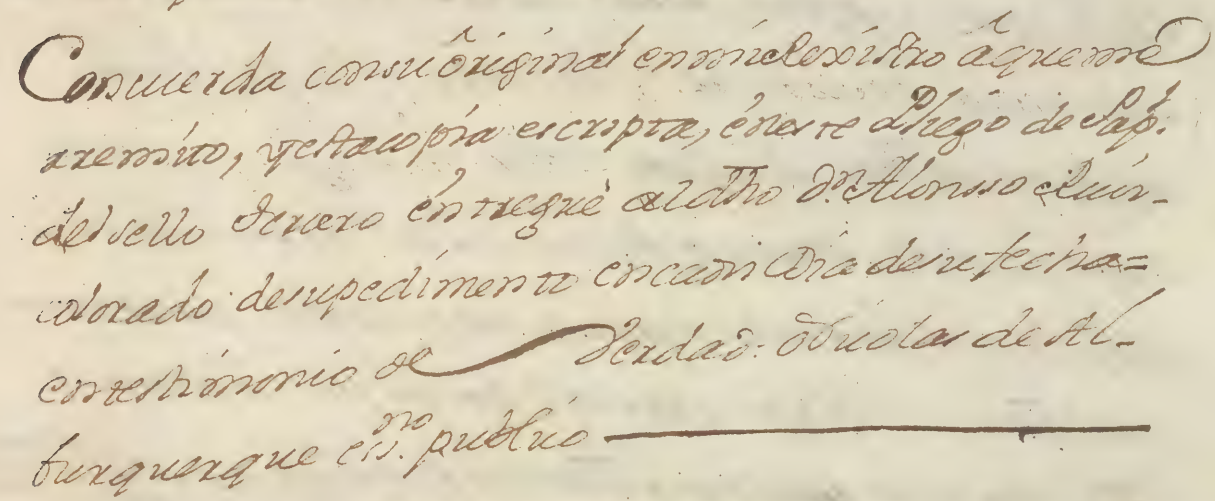 Concuerda con su original en mi Rexistro a que me
rremito, y esta copia escripta, en este Pliego de Pap.l
del sello tercero entregué al dho Dn. Alonsso
colorado de su pedimento en cadiz Dia de su fecha=
en testimonio de Verdad. Nicolas de Al-
burquerque ess.no publico